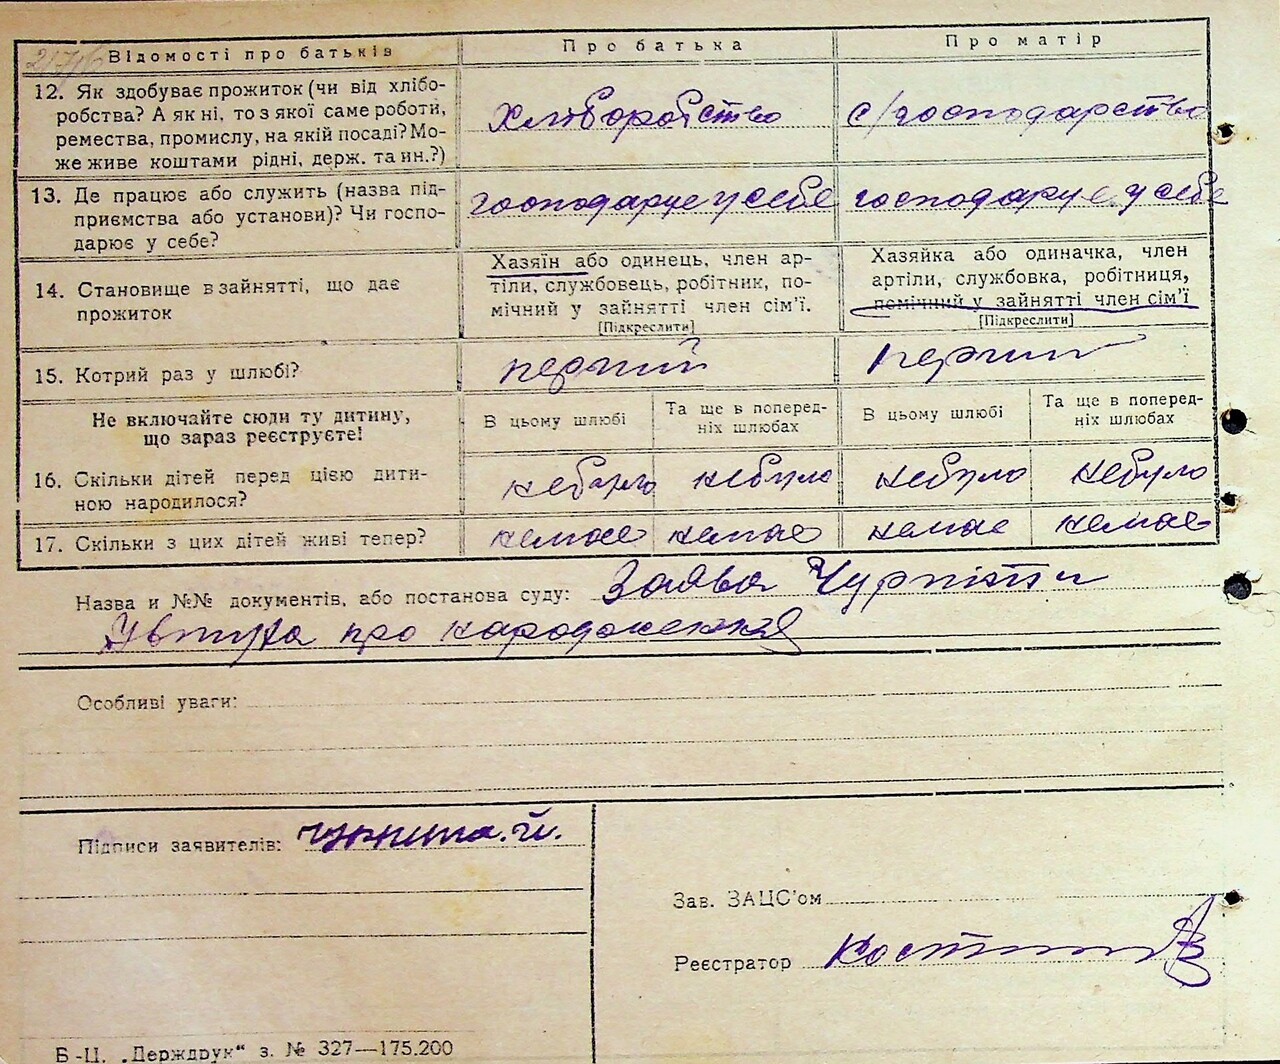 21716 Відомості про батьків Про батька Про матір
12. Як здобуває прожиток (чи від хлібо-
робства? А як ні, то з якої саме роботи,
ремества, промислу, на якій посаді? Мо-
же живе коштами рідні, держ. та ин.?)
Хліборобство с/господарство
13. Де працює або служить (назва під-
приємства або установи)? Чи госпо-
дарює у себе?
господарує у себе господарує у себе
14. Становище в зайнятті, що дає
прожиток
Хазяїн або одинець, член ар-
тіли, службовець, робітник, по-
мічний у зайнятті член сім'ї.
[Підкреслити]
Хазяйка або одиначка, член
артіли, службовка, робітниця,
помічний у зайнятті член сім'ї
[Підкреслити]
15. Котрий раз у шлюбі? перший перший
Не включайте сюди ту дитину,
що зараз реєструєте!
В цьому шлюбі
Та ще в поперед-
ніх шлюбах
В цьому шлюбі
Та ще в поперед-
ніх шлюбах
16. Скільки дітей перед цією дити-
ною народилося?
небуло небуло небуло небуло
17. Скільки з цих дітей живі тепер? немає немає немає немає
Назва и №№ документів, або постанова суду: Заява
про народження
Особливі уваги:
Підписи заявителів:
Зав. ЗАЦС'ом
Реєстратор
Б-Ц. „Держдрук“ з. № 327—175.200